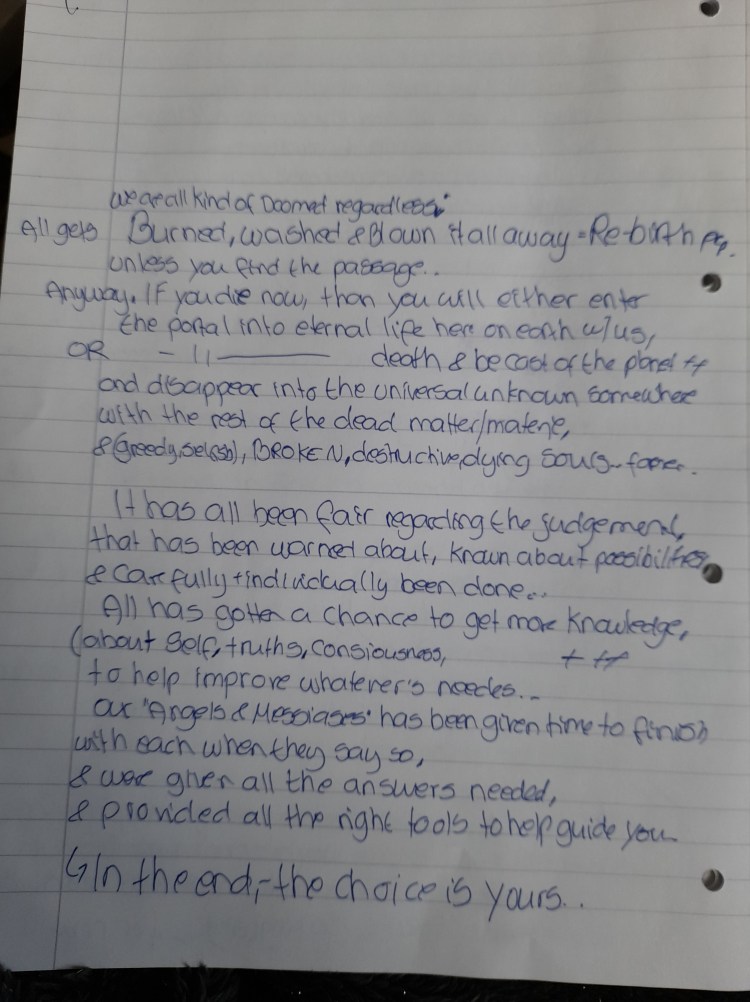 we are all kind of Doomed regardless:
All gets Burned, washed & Blown it all away = Re-birth
unless you find the passage..
Anyway. If you die now, than you will either enter
the portal into eternal life here on earth w/us,
OR - 11 ———— death & be cast of the planet ++
and disappear into the universal unknown somewhere
with the rest of the dead matter/materie,
& (greedy, selfish), BROKEN, destructive, dying souls
It has all been fair regarding the judgement,
that has been warned about, known about possibilities,
& carefully + individually been done..
All has gotten a chance to get more knowledge,
(about self, truths, consiousness, + ++
to help improve whatever's needes..
our 'Angels & Messiases' has been given time to finish
with each when they say so,
& were given all the answers needed,
& provided all the right tools to help guide you
↳ In the end, - the choice is yours..